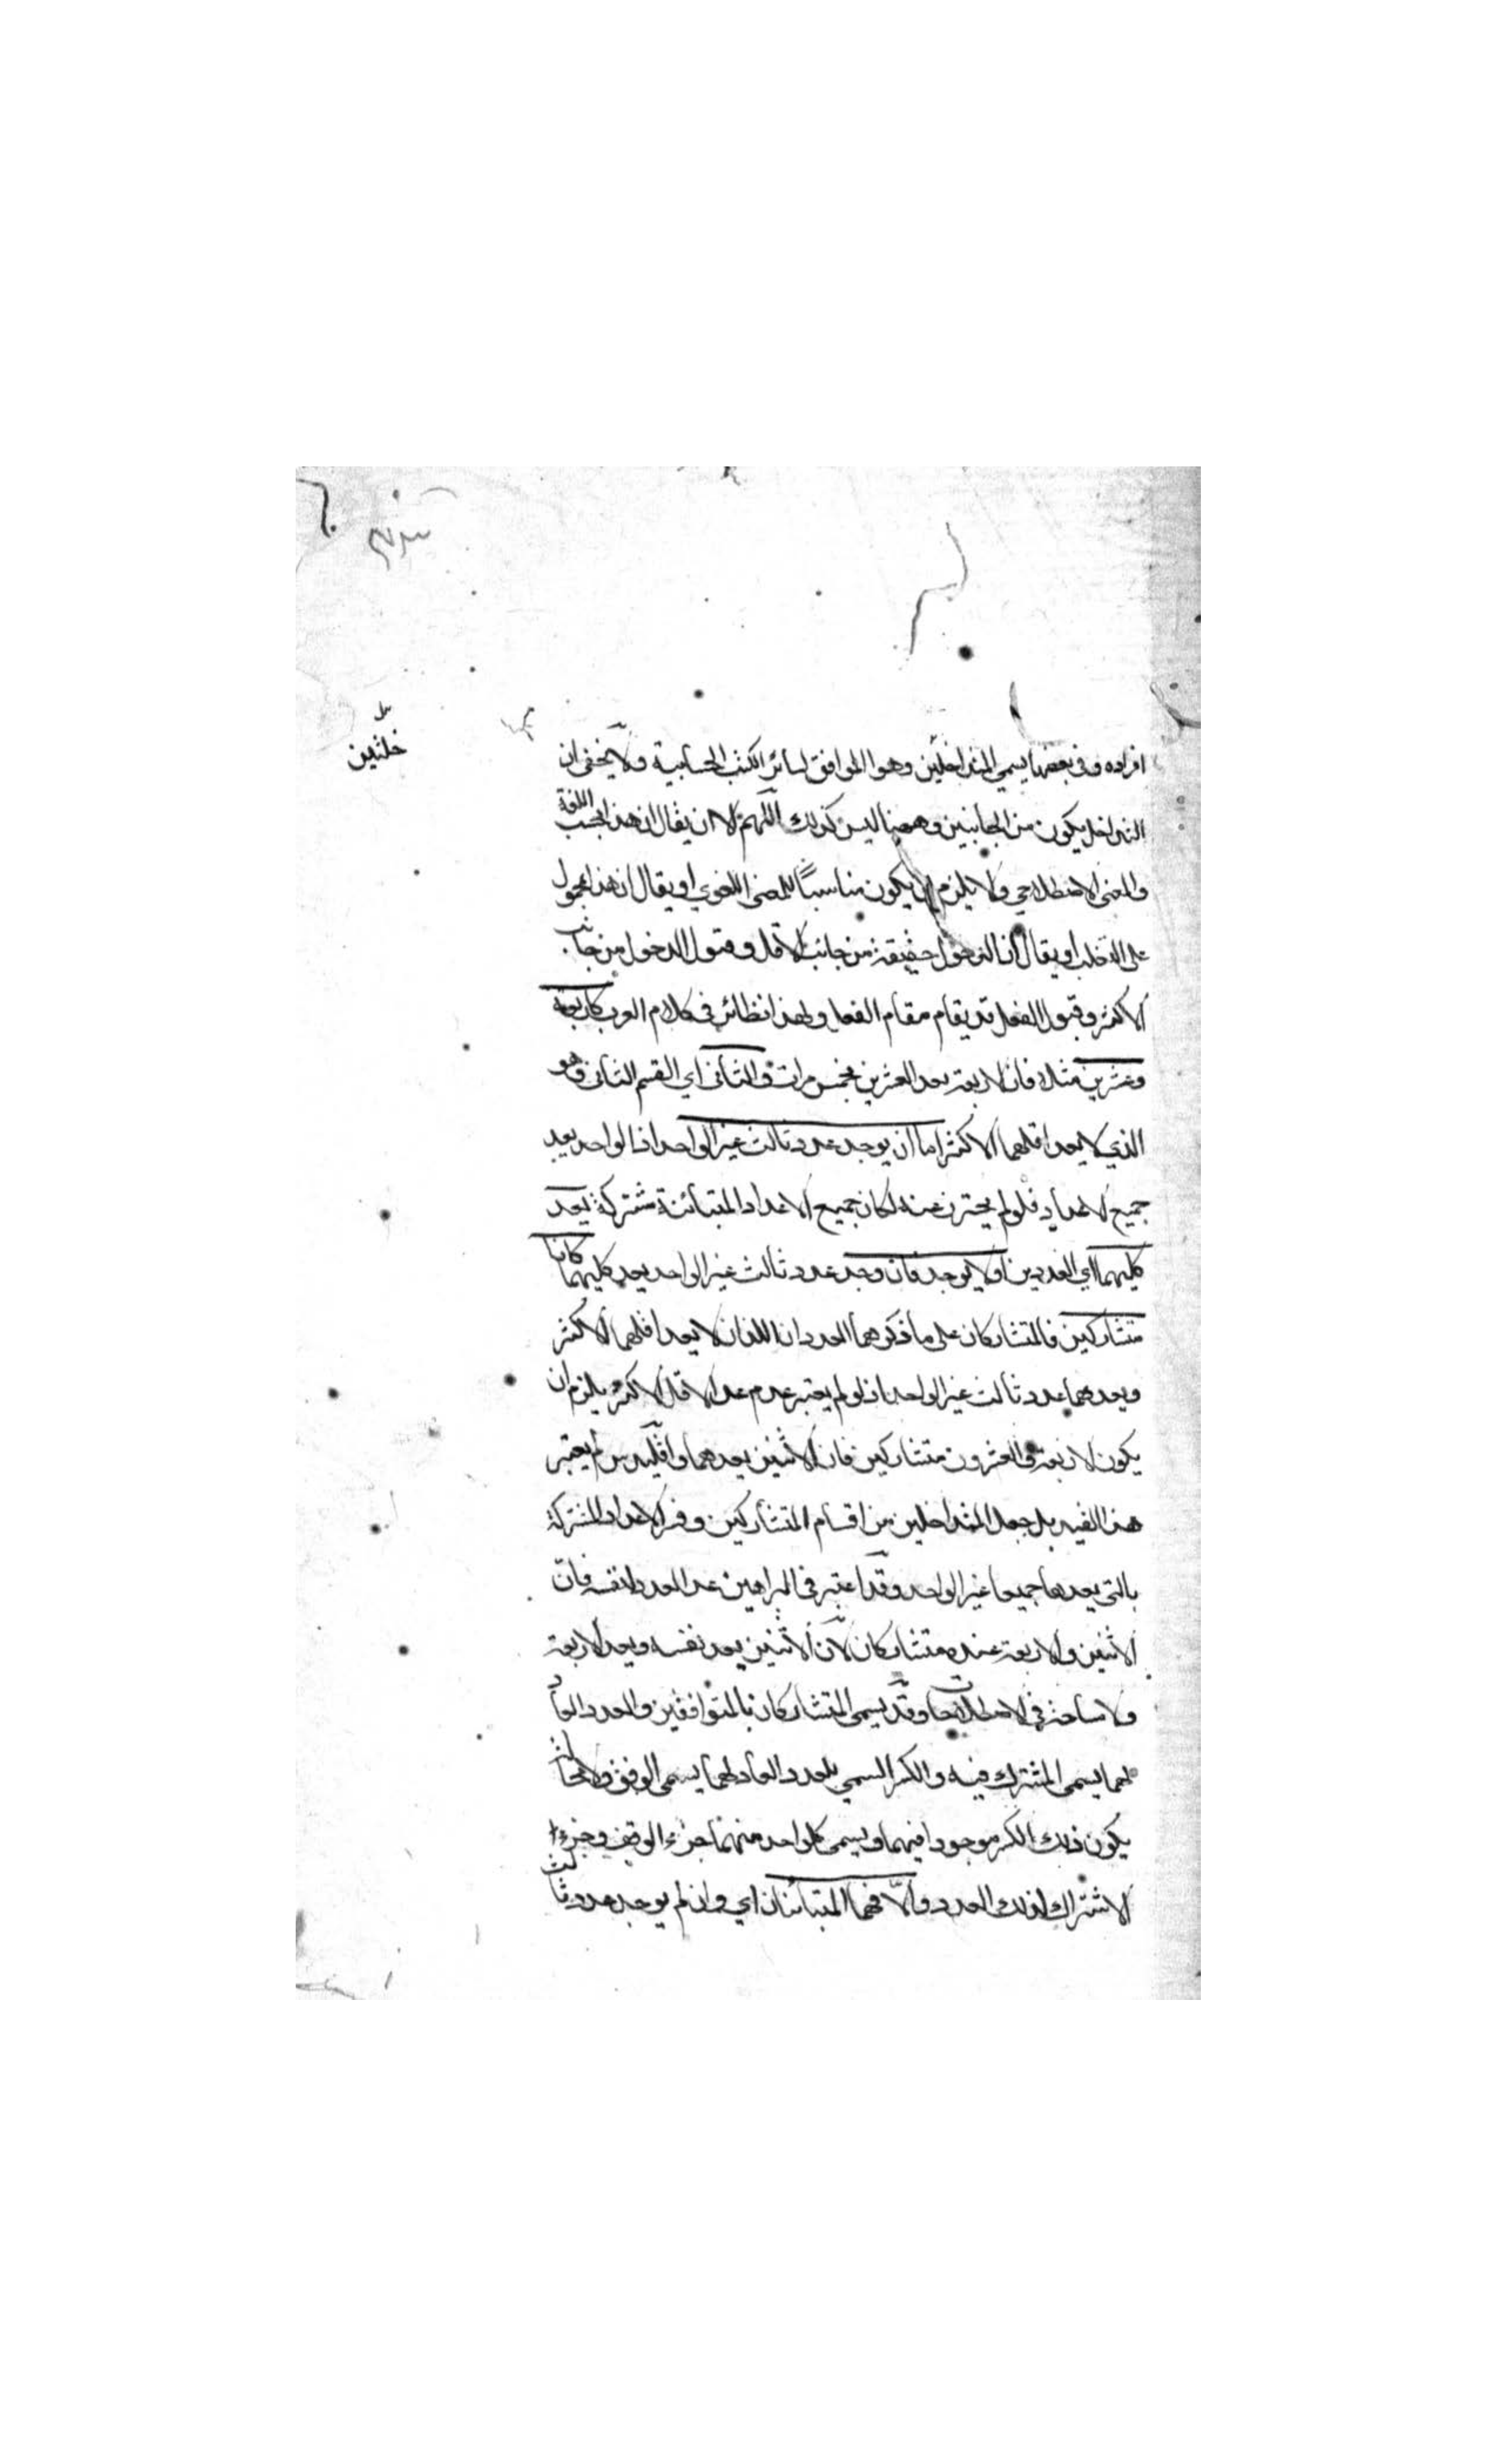 افراده وفى بعضها يسمي المتداخلين وهو الموافق لسائر الكتب الحسابية ولا يخفى ان
التداخل يكون من الجانبين وههنا ليس كذلك اللهم الا ان يقال ان هذا بحسب اللغة
والمعنى الاصطلاحي ولا يلزم ان يكون مناسباً للمعنى اللغوي او يقال ان هذا محمول
على التغلب او يقال ان الدخول حقيقة من جانب الاقل وقبول الدخول من جانب
الاكثر وقبول الفعل قد يقام مقام الفعل ولهذا نظائر فى كلام العرب كاربعة
وعشرين مثلا فان الاربعة يعد العشرين بخمس مرات والثانى اي القسم الثانى وهو
الذي لا يعد اقلهما الاكثر اما ان يوجد عدد ثالث غير الواحد اذ الواحد يعد
جميع الاعداد فلو لم يحترز عنه لكان جميع الاعداد المتبائنة مشتركة يعد
كليهما اي العددين او لا يوجد فان وجد عدد ثالث غير الواحد يعد كليهما كانا
متشاركين فالمتشاركان على ما ذكر هما العددان اللذان لا يعد اقلهما الاكثر
ويعدهما عدد ثالث غير الواحد اذ لو لم يعتبر عدم عد الاقل الاكثر يلزم ان
يكون الاربعة والعشرون متشاركين فان الاثنين يعدهما واقليدس لم يعتبر
هذا القيد بل جعل المتداخلين من اقسام المتشاركين وفسر الاعداد المشتركة
بالتى يعدها جميعا غير الواحد وقد اعتبر فى البراهين عد العدد لنفسه فان
الاثنين والاربعة عنده متشاركان لان الاثنين يعد نفسه ويعد الاربعة
ولا مشاحة فى الاصطلاحات وقد يسمى المتشاركان بالمتوافقين والعدد العاد
لهما يسمى المشترك فيه والكسر السمي للعدد العاد لهما يسمى الوفق ولا محالة
يكون ذلك الكسر موجودا فيهما ويسمى كل واحد منهما جزء الوفق وجزء
الاشتراك لذلك العدد والا فهما المتبائنان اي وان لم يوجد عدد ثالث